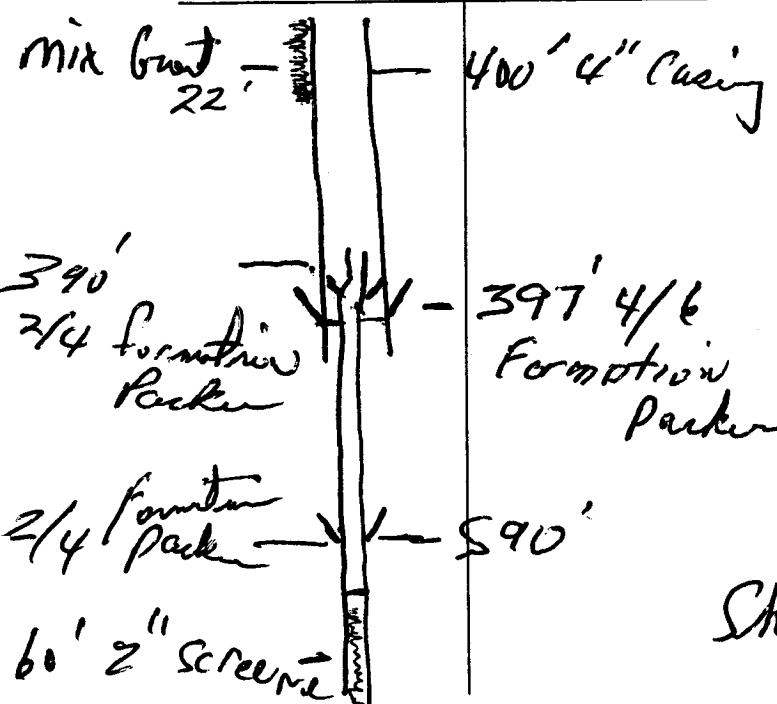 mix Grout
22'
400' 4" Casing
390'
2/4 formation
Packer
397' 4/6
Formation
Packer
2/4 formation
Packer
590'
60' 2" Screene
Sh